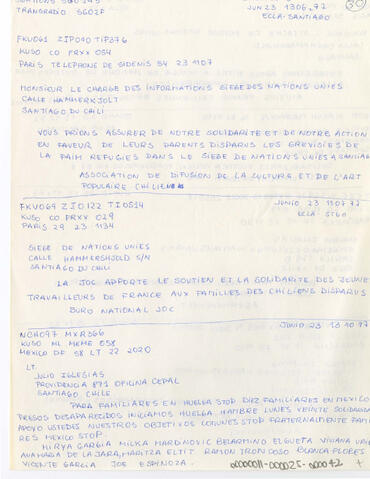 TRANSRADIO SGO2F
JUN 23 1306.77
ECLA-SANTIAGO
FKU061 ZIP040 TIP376
KUSO CO FRXX 034
PARIS TELEPHONE DE SIDENIS 54 23 1107
MONSIEUR LE CHARGE DES INFORMATIONS SIEGE DES NATIONS UNIES
CALLE HAMMERKJOLT
SANTIAGO DU CHILI
VOUS PRIONS ASSURER DE NOTRE SOLIDARITE ET DE NOTRE ACTION
EN FAVEUR DE LEURS PARENTS DISPARUS LES GREVISTES DE
LA FAIM REFUGIES DANS LE SIEGE DE NATIONS UNIES A SANTIAGO
ASSOCIATION DE DIFUSION DE LA CULTURA ET DE L'ART
POPULAIRE CHILIEN
FKU069 ZIO122 TIO514
JUNIO 23 1307 77
KUSO CO FRXX 029
ECLA STGO
PARIS 29 23 1134
SIEGE DE NATIONS UNIES
CALLE HAMMERSHJOLD S/N
SANTIAGO DU CHILI
LA JOC APPORTE LE SOUTIEN ET LA SOLIDARITE DES JEUNE
TRAVAILLEURS DE FRANCE AUX FAMILLES DES CHILIENS DISPARUS
BURO NATIONAL JOC
JUNIO 23 13.10 77
NCH097 MXR366
KUSO NL MEME 058
MEXICO DF 58 LT 22 2020
LT.
JULIO IGLESIAS
PROVIDENCIA 871 OFICINA CEPAL
SANTIAGO CHILE
PARA FAMILIARES EN HUELGA STOP DIEZ FAMILIARES EN MEXICO
PRESOS DESAPARECIDOS INICIAMOS HUELGA HAMBRE LUNES VEINTE SOLIDARIDAD
APOYO USTEDES NUESTROS OBJETIVOS COMUNES STOP FRATERNALMENTE FAMI
RES MEXICO STOP.
MIRYA GARCIA MILKA MARDINOVIC BELARMINO ELGUETA VIVIANA
ANAMARIA DE LA JARA, MARITZA ELTIT RAMON TRONCOSO BLANCA FLORES
VICENTE GARCIA JOE ESPINOZA.
0000011-000025-000042